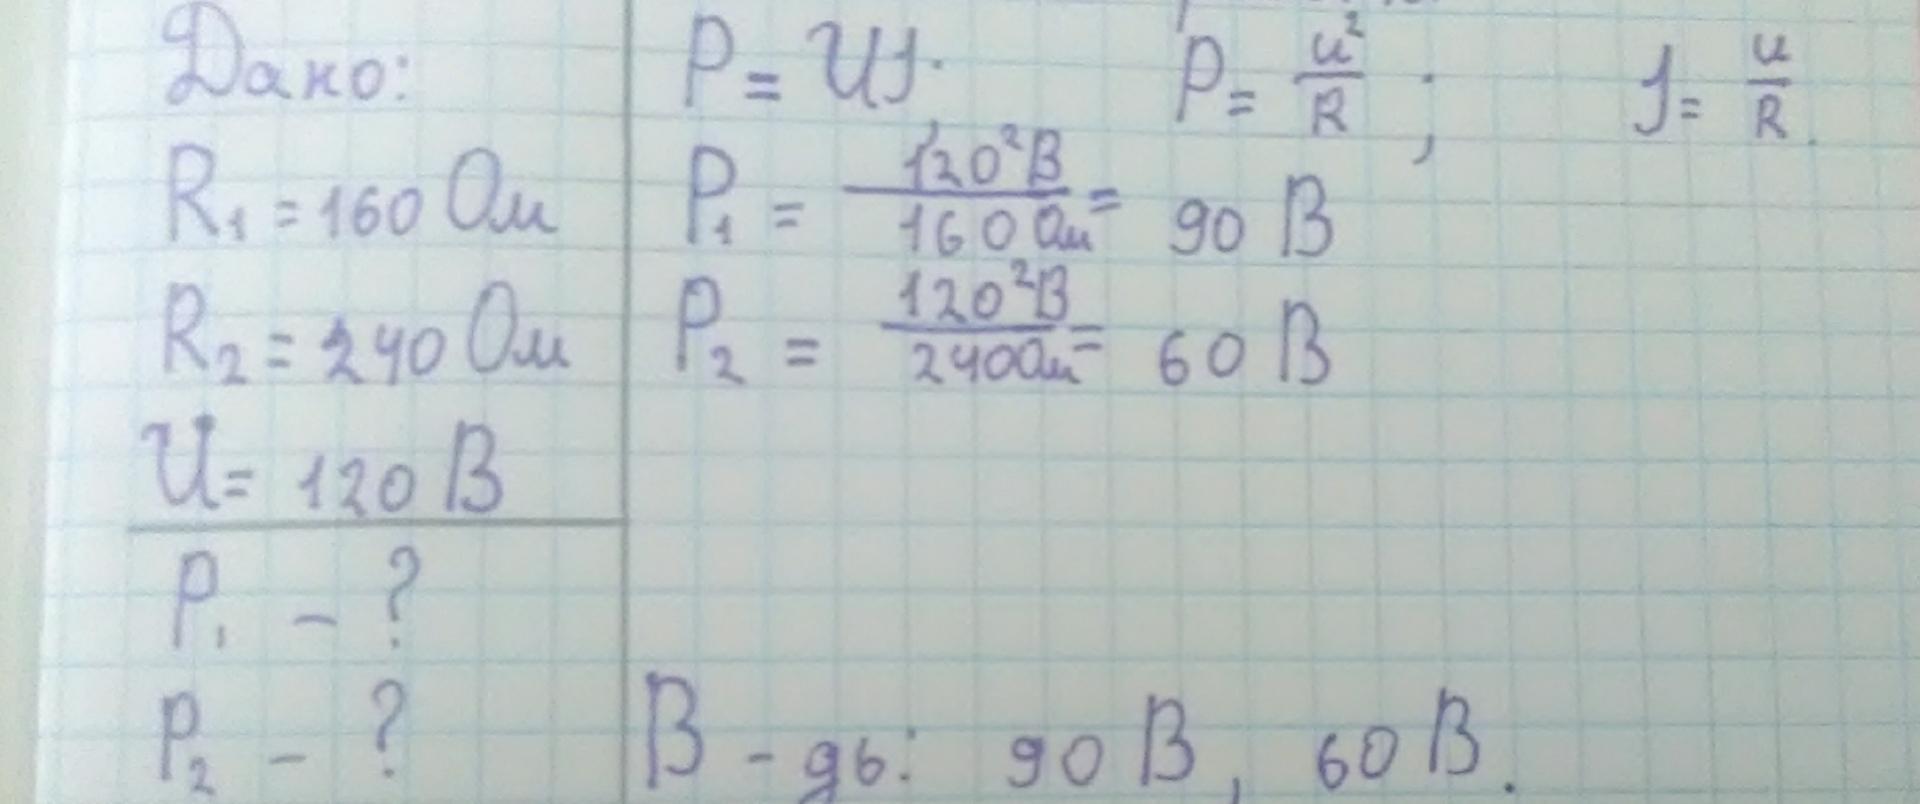 Дано:
R₁ = 160 Ом
R₂ = 240 Ом
U = 120 В
P₁ - ?
P₂ - ?
P = UJ. P = u²/R ; J = u/R.
P₁ = 120²В/160 Ом = 90 В
P₂ = 120²В/240Ом = 60 В
В - дь: 90 В, 60 В.